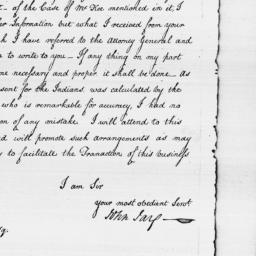 t - of the Case of Mr Doe mentioned in it. I
er Information but what I received from your
h I have referred to the Attorney General and
to write to you - If any thing on my part
me necessary and proper it shall be done. as
sent for the Indians was calculated by the
who is remarkable for accuracy, I had no
on of any mistake. I will attend to this
nd will promote such arrangements as may
y to facilitate the Transaction of this Business
I am Sir
your most obedient Servt
John Jay